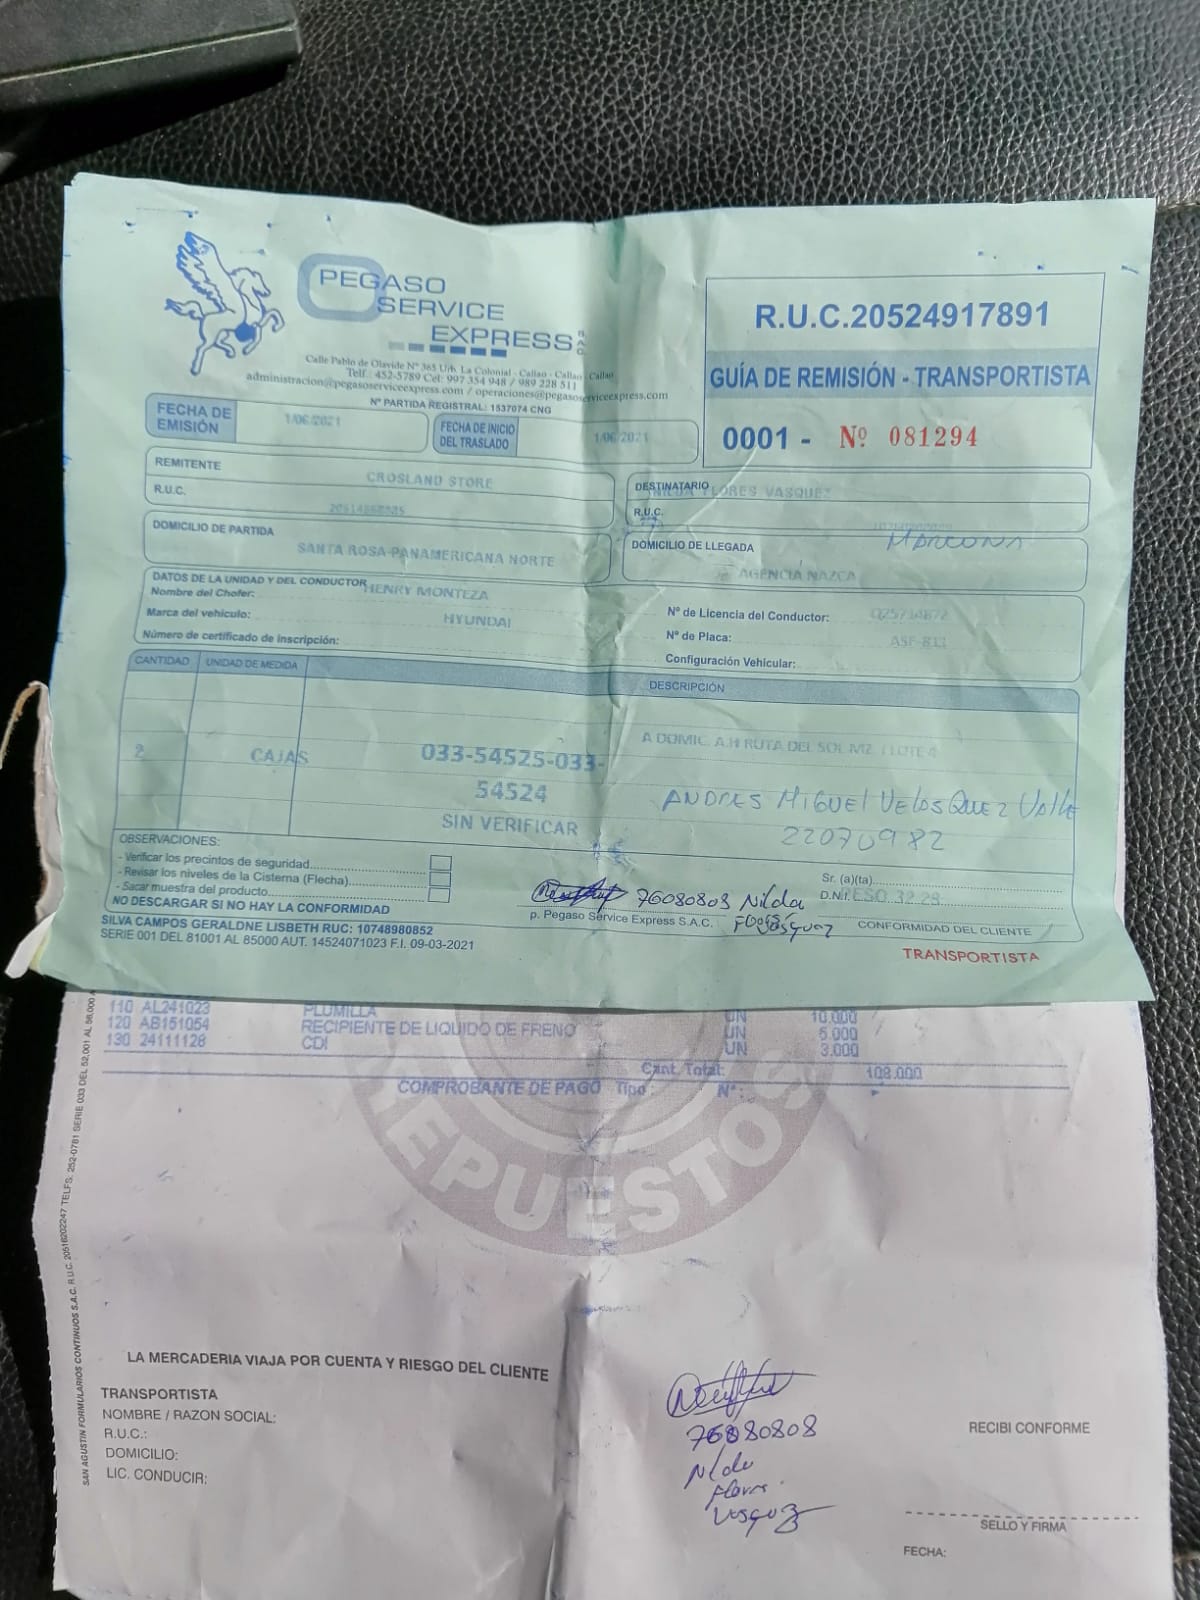 PEGASO
SERVICE
EXPRESS S.A.C.
Calle Pablo de Olavide Nº 365 Urb. La Colonial - Callao - Callao - Callao
Telf.: 452-5789 Cel: 997 354 948 / 989 228 511
administracion@pegasoserviceexpress.com / operaciones@pegasoserviceexpress.com
Nº PARTIDA REGISTRAL: 1537074 CNG
R.U.C.20524917891
GUÍA DE REMISIÓN - TRANSPORTISTA
0001 - Nº 081294
FECHA DE EMISIÓN 1/06/2021
FECHA DE INICIO DEL TRASLADO 1/06/2021
REMITENTE CROSLAND STORE
R.U.C.
DESTINATARIO NILDA FLORES VASQUEZ
R.U.C.
DOMICILIO DE PARTIDA
SANTA ROSA-PANAMERICANA NORTE
MARCONA
DOMICILIO DE LLEGADA
AGENCIA NAZCA
DATOS DE LA UNIDAD Y DEL CONDUCTOR
Nombre del Chofer: HENRY MONTEZA
Marca del vehículo: HYUNDAI
Número de certificado de inscripción:
Nº de Licencia del Conductor: Q25714872
Nº de Placa: ASF-813
Configuración Vehicular:
CANTIDAD UNIDAD DE MEDIDA DESCRIPCIÓN
A DOMIC. A.H RUTA DEL SOL MZ. I LOTE 4
2 CAJAS 033-54525-033-
54524
SIN VERIFICAR
ANDRES MIGUEL VELASQUEZ VALLE
22070982
OBSERVACIONES:
- Verificar los precintos de seguridad
- Revisar los niveles de la Cisterna (Flecha)
- Sacar muestra del producto
NO DESCARGAR SI NO HAY LA CONFORMIDAD
76080808 Nilda
Flores Vasquez
p. Pegaso Service Express S.A.C.
Sr. (a)(ta)
D.N.I. PESO 32.29
CONFORMIDAD DEL CLIENTE
SILVA CAMPOS GERALDNE LISBETH RUC: 10748980852
SERIE 001 DEL 81001 AL 85000 AUT. 14524071023 F.I. 09-03-2021
TRANSPORTISTA
110 AL241023 PLUMILLA UN 10.000
120 AB151054 RECIPIENTE DE LIQUIDO DE FRENO UN 5.000
130 24111128 CDI UN 3.000
Cant. Total: 108.000
COMPROBANTE DE PAGO Tipo : N°:
REPUESTOS
SAN AGUSTIN FORMULARIOS CONTINUOS S.A.C. R.U.C. 20516202247 TELFS: 252-0781 SERIE 033 DEL 52,001 AL 58,000
LA MERCADERIA VIAJA POR CUENTA Y RIESGO DEL CLIENTE
TRANSPORTISTA
NOMBRE / RAZON SOCIAL:
R.U.C.:
DOMICILIO:
LIC. CONDUCIR:
76080808
Nilda
Flores
Vasquez
RECIBI CONFORME
SELLO Y FIRMA
FECHA: